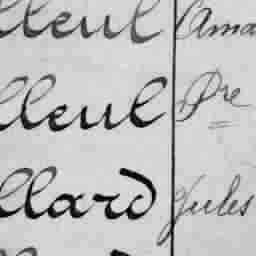 lleul Ama
lleul Pre
llard Jules